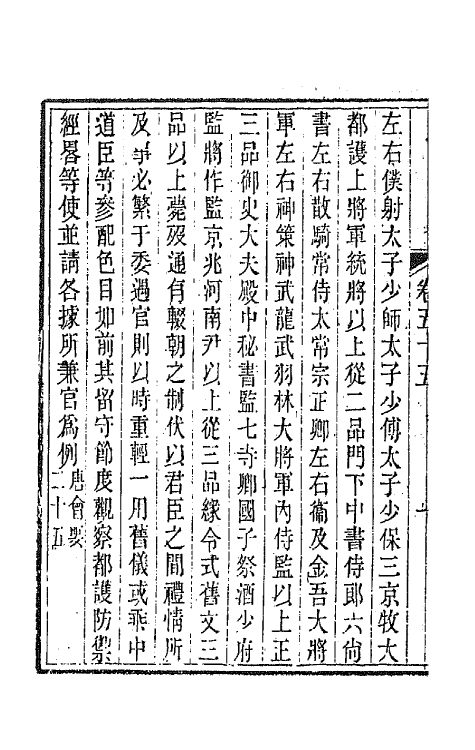 卷五十五
左右僕射太子少師太子少傅太子少保三京牧大
都護上將軍統將以上從二品門下中書侍郎六尙
書左右散騎常侍太常宗正卿左右衞及金吾大將
軍左右神策神武龍武羽林大將軍內侍監以上正
三品御史大夫殿中秘書監七寺卿國子祭酒少府
監將作監京兆河南尹以上從三品緣令式舊文三
品以上薨歿通有輟朝之制伏以君臣之間禮情所
及爭必繁于委遇官則以時重輕一用舊儀或乖中
道臣等參配色目如前其留守節度觀察都護防禦
經畧等使並請各據所兼官爲例唐會要
二十五